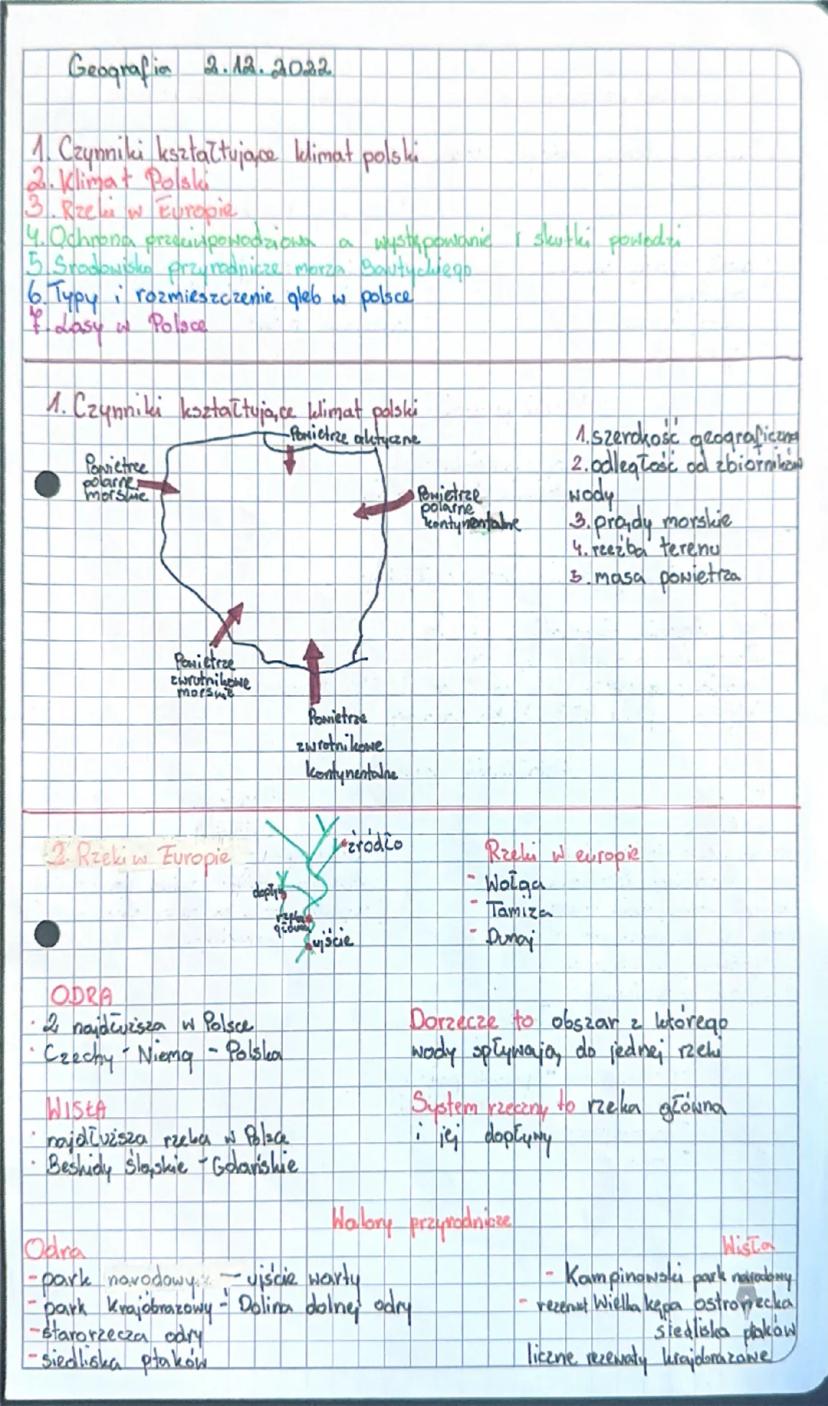 Geografia 2.12.2022
1. Czynniki kształtujące klimat polski
2. Klimat Polski
3. Rzeki w Europie
4. Ochrona przeciwpowodziowa a występowanie i skutki powodzi
5. Środowisko przyrodnicze morza Bałtyckiego
6. Typy i rozmieszczenie gleb w polsce
7. Lasy w Polsce
1. Czynniki kształtujące klimat polski
Powietrze arktyczne
Powietrze
polarne
morskie
Powietrze
polarne
kontynentalne
Powietrze
zwrotnikowe
morskie
Powietrze
zwrotnikowe
kontynentalne
1. szerokość geograficzna
2. odległość od zbiorników
wody
3. prądy morskie
4. rzeźba terenu
5. masa powietrza
2. Rzeki w Europie
źródło
dopływ
rzeka
główna
ujście
Rzeki w europie
- Wołga
- Tamiza
- Dunaj
ODRA
· 2 najdłuższa w Polsce
· Czechy - Niemcy - Polska
Dorzecze to obszar z którego
wody spływają do jednej rzeki
WISŁA
· najdłuższa rzeka w Polsce
· Beskidy Śląskie - Gdańskie
System rzeczny to rzeka główna
i jej dopływy
Walory przyrodnicze
Odra
- park narodowy - ujście warty
- park Krajobrazowy - Dolina dolnej odry
- starorzecza odry
- siedliska ptaków
Wisła
- Kampinowski park narodowy
- rezerwat Wielka kępa ostromecka
siedliska ptaków
liczne rezerwaty krajobrazowe